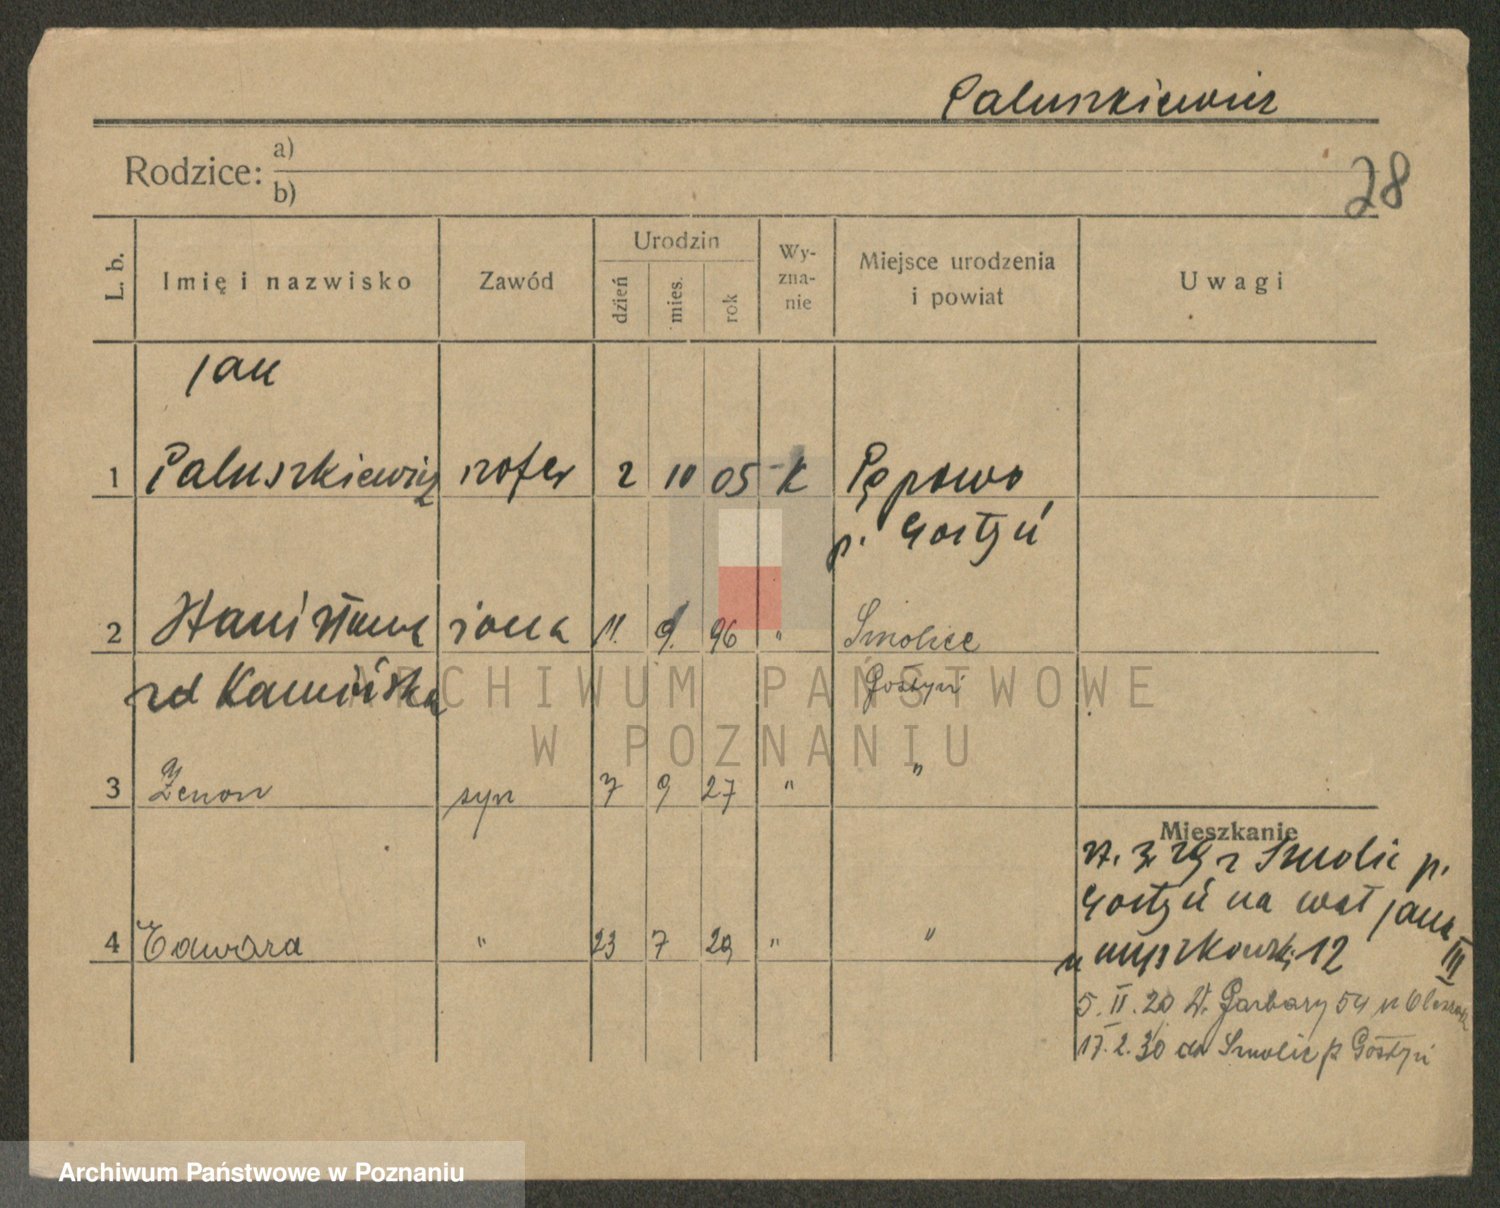 Paluszkiewicz
Rodzice: a)
b)
28
L. b.
Imię i nazwisko
Zawód
Urodzin
dzień
mies.
rok
Wy-
zna-
nie
Miejsce urodzenia
i powiat
Uwagi
Jan
1 Paluszkiewicz szofer 2 10 05 k Pępowo
p. Gostyń
2 Stanisława żona 11. 9. 96 " Smolice
zd Kamińska Gostyń
3 Zenon syn 7 9 27 " "
4 Edward " 23 7 29 " "
Mieszkanie
27. 3. 29 z Smolic p.
Gostyń na wał Jana III
u Myszkowski 12
5. II. 20 W. Garbary 54
17. 2. 30 do Smolic p Gostyń
ARCHIWUM PAŃSTWOWE
W POZNANIU
Archiwum Państwowe w Poznaniu